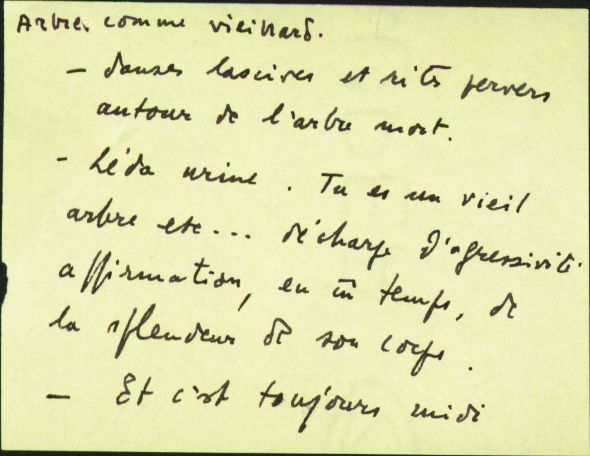 Arbre comme vieillard.
— danses lascives et rites pervers
autour de l'arbre mort.
- Léda urine. Tu es un vieil
arbre etc... décharge d'agressivité
affirmation, en m̄ temps, de
la splendeur de son corps.
— Et c'est toujours midi